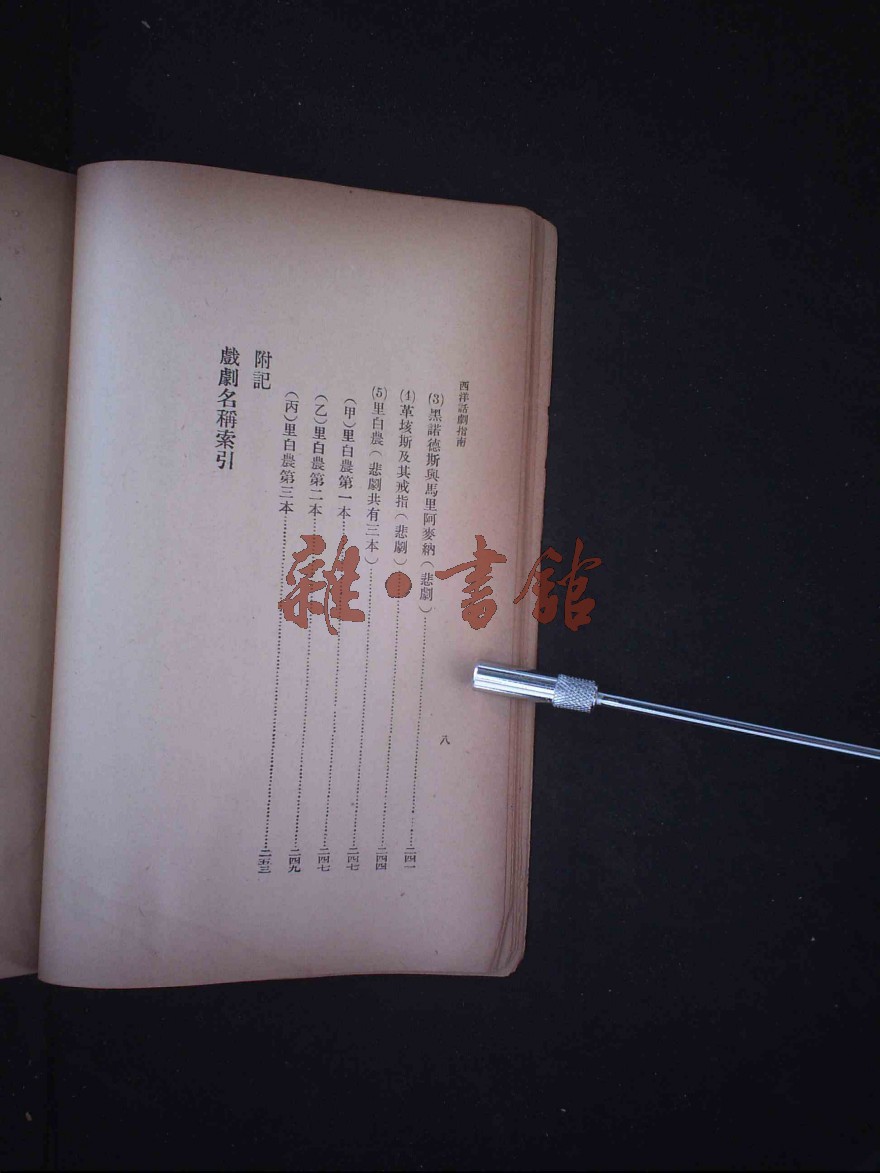 西洋話劇指南
八
(3)黑諾德斯與馬里阿麥納(悲劇)……二四一
(4)革垓斯及其戒指(悲劇)……二四四
(5)里白農(悲劇共有三本)……二四七
(甲)里白農第一本……二四七
(乙)里白農第二本……二四九
(丙)里白農第三本……二五三
附記
戲劇名稱索引
雜·書館